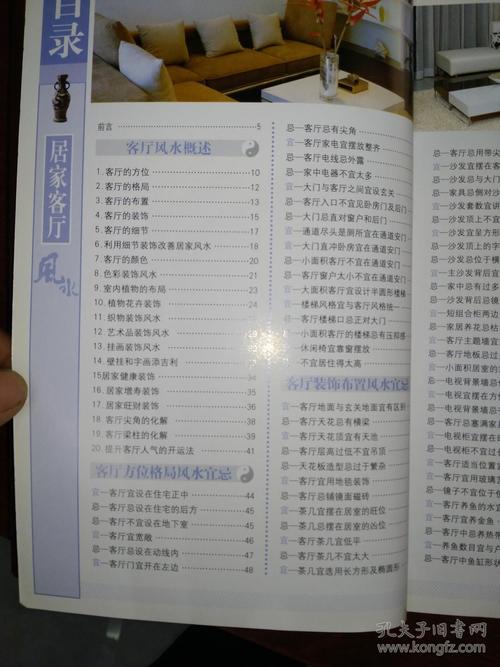 目录
居家客厅
风水
前言 5
客厅风水概述
1. 客厅的方位 10
2. 客厅的格局 12
3. 客厅的布置 13
4. 客厅的装饰 15
5. 客厅的细节 17
6. 利用细节装饰改善居家风水 18
7. 客厅的颜色 20
8. 色彩装饰风水 21
9. 室内植物的布局 23
10. 植物花卉装饰 24
11. 织物装饰风水
12. 艺术品装饰风水
13. 挂画装饰风水
14. 壁挂和字画添吉利
15居家健康装饰
16. 居家增寿装饰 35
17. 居家旺财装饰 34
18. 客厅尖角的化解 36
19. 客厅梁柱的化解 39
20. 提升客厅人气的开运法 41
客厅方位格局风水宜忌
宜—客厅宜设在住宅正中 44
宜—客厅忌设在住宅的后方 44
忌—客厅不宜设在地下室 45
宜—客厅宜宽敞 46
忌—客厅忌设在动线内 47
宜—客厅门宜开在左边 48
忌—客厅忌有尖角
宜—客厅家电宜摆放整齐
忌—客厅电线忌外露
忌—家中电器不宜太多
宜—大门与厅之间宜设玄关
忌—客厅入口不宜见卧房门及后门
忌—大门忌直对窗户和后门
忌—通道尽头是厕所宜在通道安门
忌—大门直冲卧房宜在通道安门
忌—小面积客厅不宜在通道安门
忌—客厅窗户太小不宜在通道安门
宜—大面积客厅宜设计半圆形楼梯
宜—楼梯风格宜与客厅风格统一
忌—客厅楼梯口忌正对大门
忌—小面积客厅的楼梯忌有压抑感
休闲椅宜靠窗摆放
不宜居住得太高
客厅装饰布置风水宜忌
宜—客厅地面与玄关地面宜有区别
忌—客厅天花忌有横梁
宜—客厅天花顶宜有天池
忌—客厅层高过低不宜吊顶
忌—天花板造型忌过于繁杂
宜—客厅宜用地毯装饰
忌—客厅忌铺镜面磁砖
宜—茶几宜摆在居室的旺位
忌—茶几忌摆在居室的凶位
宜—客厅茶几宜低平
忌—客厅茶几不宜太大
宜—茶几宜选用长方形及椭圆形
忌—客厅忌用带尖
宜—沙发宜摆在客
忌—沙发忌与大门
忌—家具忌侧对沙
宜—沙发套数宜讲
忌—沙发顶上不宜
宜—沙发宜呈方形
忌—沙发顶上的字
忌—沙发忌位于横
宜—主沙发背后宜
忌—家中忌有过多
忌—沙发背后忌镜
宜—短组合柜两边
忌—居家养花忌枯
宜—客厅主题墙宜
忌—客厅地板忌过
忌—小面积居室的
忌—电视背景墙忌
宜—电视宜摆在方
忌—电视背景墙忌
忌—客厅忌塞满家
宜—电视柜宜摆在
忌—电视柜不宜过长
宜—客厅适当位置
宜—客厅宜用玻璃
忌—镜子不宜位于
宜—客厅养鱼的水宜
宜—客厅养鱼宜养金鱼
忌—客厅中忌养热带
宜—养鱼数目宜与户
宜—客厅中鱼缸形状
孔夫子旧书网
www.kongfz.com